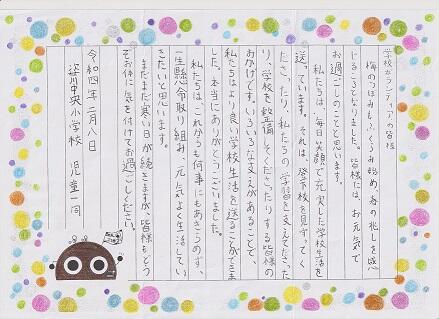 学校ボランティアの皆様
梅のつぼみもふくらみ始め、春の兆しを感
じるころとなりました。皆様には、お元気で
お過ごしのことと思います。
私たちは、毎日笑顔で充実した学校生活を
送っています。それは、登下校を見守ってく
ださったり、私たちの学習を支えてくださった
り、学校を整備してくださったりする皆様の
おかげです。いろいろな支えがあることで、
私たちはより良い学校生活を送ることができま
した。本当にありがとうございました。
私たちは、これからも何事にもあきらめず、
一生懸命取り組み、元気よく生活してい
きたいと思います。
まだまだ寒い日が続きますが、皆様もどう
ぞお体に気を付けてお過ごしください。
令和四年二月八日
姿川中央小学校 児童一同